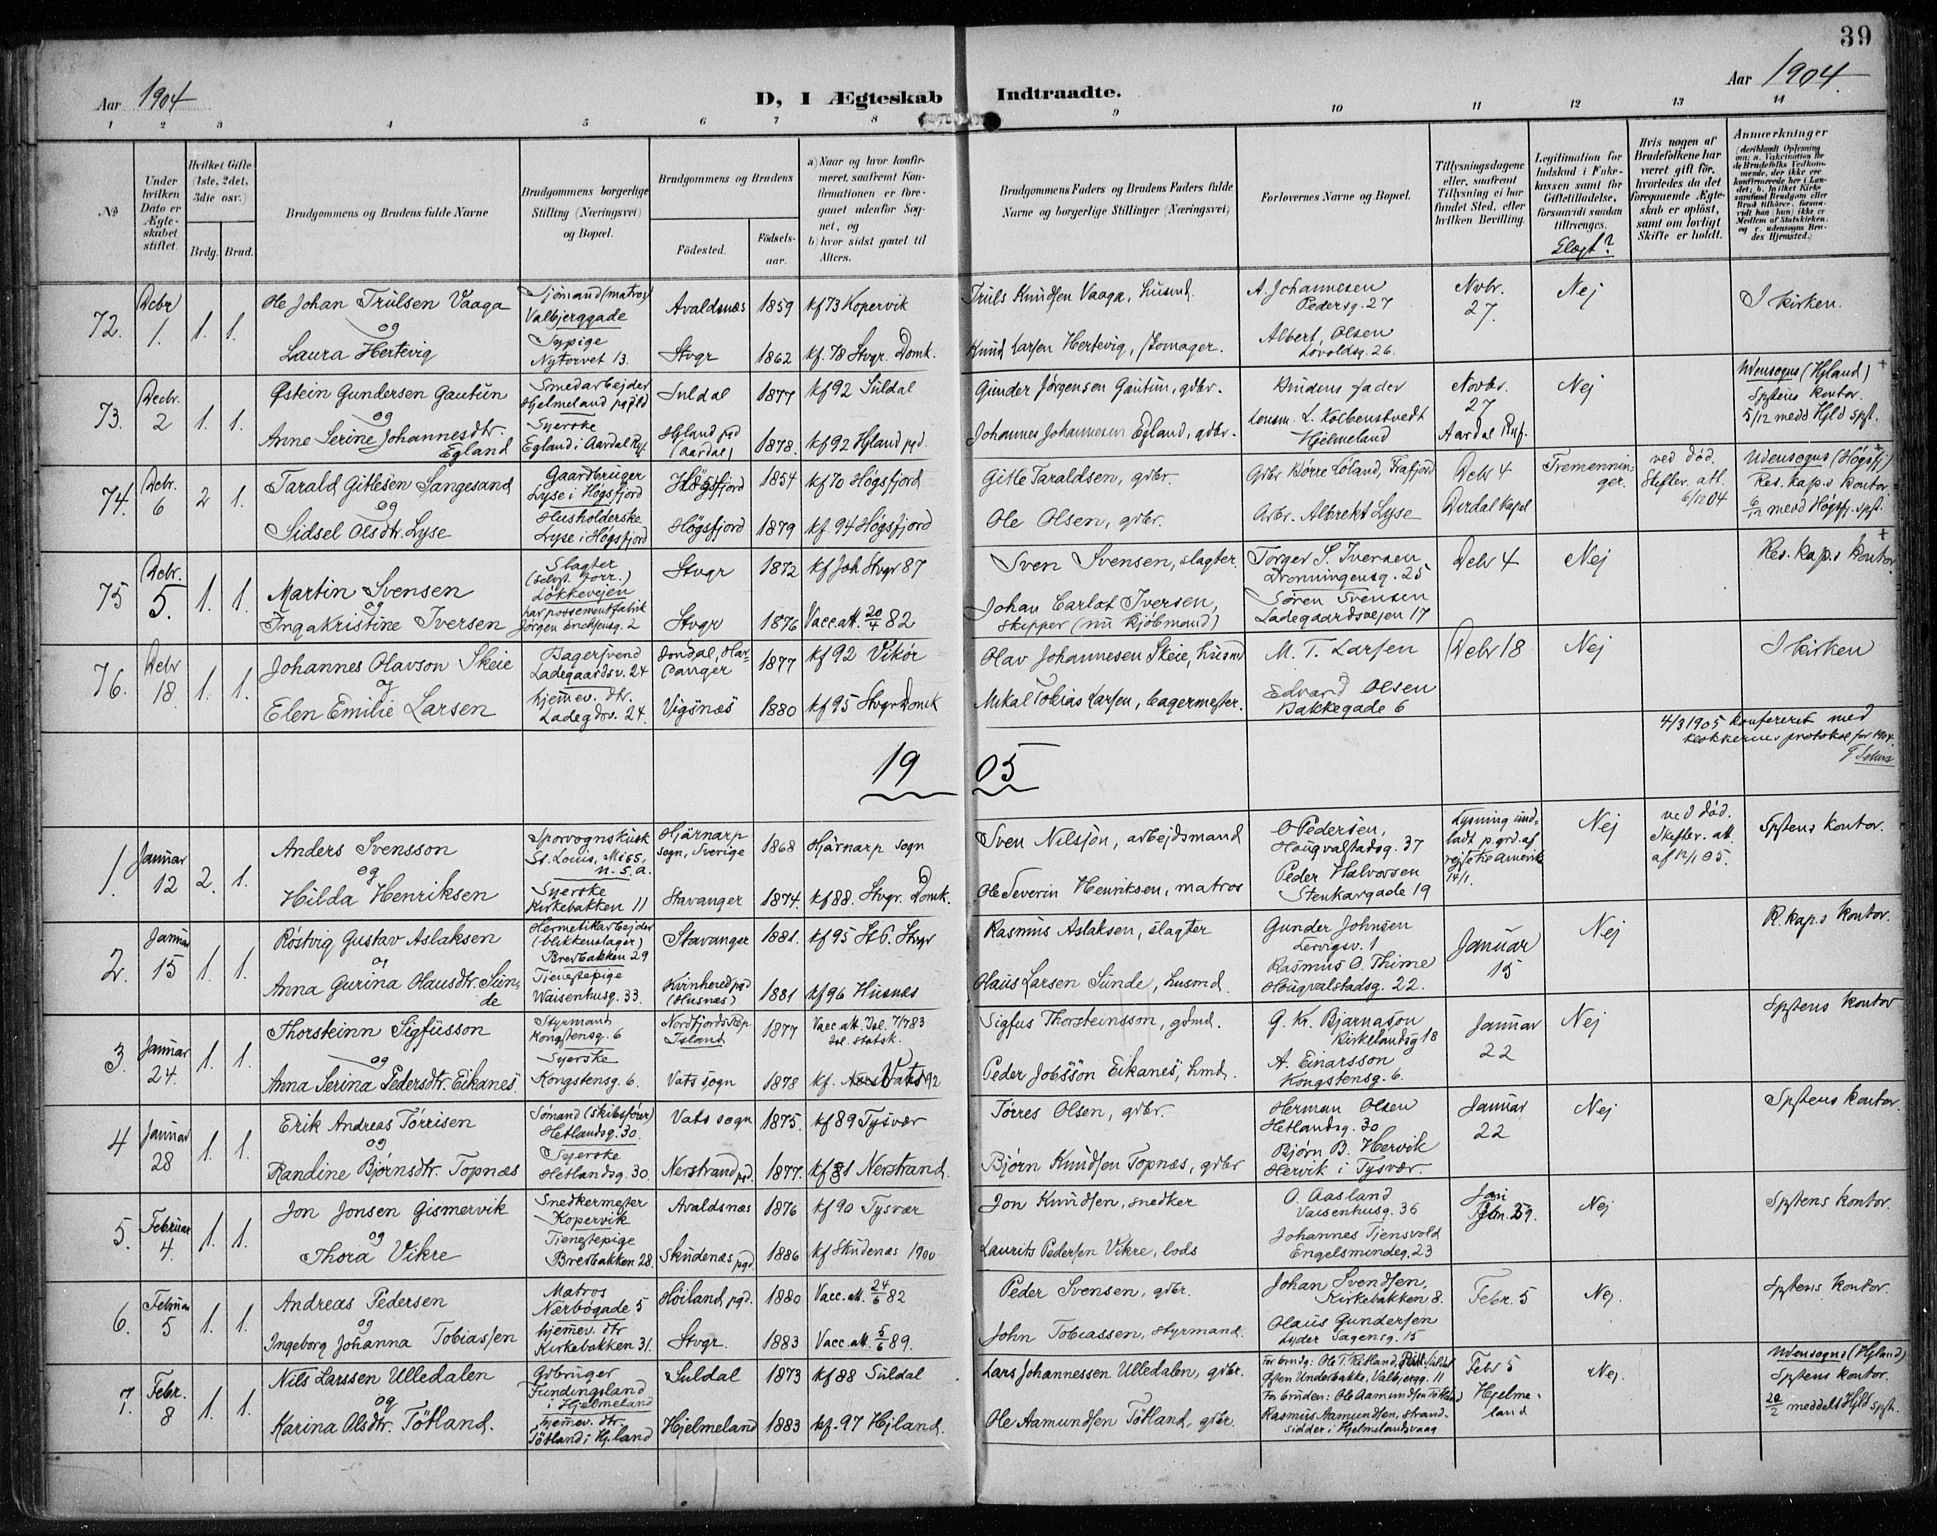 39
Aar 1904
D, I Ægteskab Indtraadte.
Aar 1904
1 2 3 4 5 6 7 8 9 10 11 12 13 14
No
Under hvilken Dato er Ægteskabet stiftet.
Hvilket Gifte (1ste, 2det, 3die osv.)
Brdg. Brud.
Brudgommens og Brudens fulde Navne
Brudgommens borgerlige Stilling (Næringsvei) og Bopæl.
Brudgommens og Brudens
Födested. Födselsaar.
a) Naar og hvor konfirmeret, saafremt Konfirmationen er foregaaet udenfor Sognet, og
b) hvor sidst gaaet til Alters.
Brudgommens Faders og Brudens Faders fulde Navne og borgerlige Stillinger (Næringsvei)
Forlovernes Navne og Bopæl.
Tillysningsdagene eller, saafremt Tillysning ei har fundet Sted, efter hvilken Bevilling.
Legitimation for Indskud i Enkekassen samt for Giftetilladelse, forsaavidt saadan tiltrænges.
Slægt?
Hvis nogen af Brudefolkene har været gift før, hvorledes da det foregaaende Ægteskab er oplöst, samt om lovligt Skifte er holdt.
Anmærkninger
72. Debr 1. 1. 1.
Ole Johan Trulsen Vaaga
og
Laura Hertevig
Sjömand (matros)
Valbjerggade
Sypige
Nytorvet 13.
Avaldsnæs 1859 kf 73 Kopervik
Stvgr 1862 kf. 78 Stvgr. Domk.
Truls Knudsen Vaaga, husmd.
Knud Larsen Hertevig, skomager.
A. Johannesen
Pedersg. 27
Albert Olsen
Lovoldsg. 26.
Novbr. 27.
Nej
I kirken.
73. Decbr. 2 1. 1.
Østein Gundersen Gautun
og
Anne Serine Johannesdtr. Egland
Smedarbejder
Hjelmeland pgld
Syerske
Egland i Aardal
Suldal 1877 kf 92 Suldal
Hjland pgd (Aardal) 1878. kf 92 Hjland pgd.
Gunder Jørgensen Gautun, gdbr.
Johannes Johannesen Egland, gdbr.
Brudens fader
Lensm. L. Kolbenstvedt
Hjelmeland
Novbr. 27
Aardal
Nej
Udensogns (Hjland)
Spstens kontor.
5/12 medd Hjld spst.
74. Debr. 6 2 1.
Tarald Gitlesen Sangesand
og
Sidsel Olsdtr. Lyse
Gaardbruger
Lyse i Høgsfjord
Husholderske
Lyse i Høgsfjord
Högsfjord 1854 kf 70 Högsfjord
Högsfjord 1879 kf. 94 Högsfjord
Gitle Taraldsen, gdbr.
Ole Olsen, gdbr.
Gdbr Børre Løland, Frafjord
Gdbr. Albrekt Lyse
Debr 4
Dirdal Kapel
Tremenninger.
ved død.
Skiftev. att.
6/12 04
Udensogns (Høgsfj.)
Res. kap.s kontor
6/12 medd Høgsfj. spst.
75 Debr. 5. 1. 1.
Martin Svensen
og
Inga Kristine Iversen
Slagter
(selvst. forr.)
Løkkevejen
har possementfabrik
Jörgen Erichsensg. 2
Stvgr 1872 kf Joh Stvgr 87
Stvgr 1876 Vacc att. 20/4 82
Sven Svensen, slagter
Johan Carlot Iversen,
skipper (nu kjøbmand)
Torger S. Iversen
Dronningensg. 25
Søren Svensen
Ladegaardsvejen 17
Debr 4
Nej
Res. kap.s kontor
76. Debr 18. 1. 1.
Johannes Olavson Skeie
og
Elen Emilie Larsen
Bagersvend
Ladegaardsv. 24
hjemmev. dtr.
Ladegdsv. 24.
Jondal, Hardanger 1877 kf 92 Vikör
Vigsnæs 1880 kf 95 Stvgr Domk
Olav Johannesen Skeie, husmd
Mikal Tobias Larsen, bagermester.
M. T. Larsen
Edvard Olsen
Bakkegade 6
Debr 18
Nej
I kirken
4/3 1905 konfereret med
klokkerens protokol for 1904.
1905
1. Januar 12 2. 1.
Anders Svensson
og
Hilda Henriksen
Sporvognskusk
St. Louis, Miss.
N.S.A.
Syerske
Kirkebakken 11
Hjärnarp sogn, Sverige 1868 Hjärnarp sogn
Stavanger 1874. kf 88. Stvgr. Domk.
Sven Nilsson, arbejdsmand
Ole Severin Henriksen, matros
O Pedersen,
Hougvalstadsg. 37
Peder Halvorsen
Stenkargade 19
Lysning undladt p. grd. af rejse til Amerik 14/1.
Nej
ved død.
Skiftev. att
af 12/1 05.
Spstens kontor.
2. Januar 15 1. 1.
Røstvig Gustav Aslaksen
og
Anna Gurina Olausdtr. Sunde
Hermetikarbejder
(blikkenslager)
Bredbakken 29
Tjenestepige
Waisenhusg. 33.
Stavanger 1881. kf 95 St P. Stvgr
Kvinherred pgd (Husnæs) 1881 kf 96 Husnæs
Rasmus Aslaksen, slagter
Olaus Larsen Sunde, husmd.
Gunder Johnsen
Lervigsv. 1
Rasmus O. Thime
Hougvalstadsg. 22.
Januar 15
Nej
R. kap.s kontor.
3. Januar 24. 1. 1.
Thorsteinn Sigfusson
og
Anna Serina Pedersdtr. Eikanes
Styrmand
Kongstensg. 6
Syerske
Kongstensg. 6.
Nordfjords Island 1877 Vacc att. Isl. 7/7 83
Isl. statsk.
Vats sogn 1878 kf. Vats 92
Sigfus Thorsteinsson, gdmd.
Peder Jobsson Eikanes, hmd.
G. Kr. Bjarnason
Kirkelandsg 18
A. Einarsson
Kongstensg. 6.
Januar 22
Nej
Spstens kontor
4 Januar 28 1. 1.
Erik Andreas Tørrisen
og
Randine Bjørnsdtr. Topnæs
Sømand (skibsfører)
Hetlandsg. 30.
Syerske
Hetlandsg. 30.
Vats sogn 1875. kf 89 Tysvær
Nerstrand pgd. 1877. kf 91 Nerstrand.
Tørres Olsen, gdbr.
Bjørn Knudsen Topnæs, gdbr
Herman Olsen
Hetlandsg. 30
Bjørn B. Hervik
Hervik i Tysvær.
Januar 22
Nej
Spstens kontor.
5. Februar 4. 1. 1.
Jon Jonsen Gismervik
og
Thora Vikre
Snedkermester
Kopervik
Tjenestepige
Bredbakken 28.
Avaldsnæs 1876 kf 90 Tysvær
Skudenæs pgd. 1886 kf Skudenæs 1900
Jon Knudsen, snedker
Laurits Pedersen Vikre, lods
O. Aasland
Vaisenhusg. 36
Johannes Tjensvold
Engelsmindeg. 23
Jan 29.
Nej
Spstens kontor.
6. Februar 5 1. 1.
Andreas Pedersen
og
Ingeborg Johanna Tobiassen
Matros
Nærbøgade 5
hjemmev. dtr
Kirkebakken 31.
Höiland pgd. 1880 Vacc. att. 24/6 82
Stvgr. 1883 Vacc att. 5/6 89.
Peder Svensen, gdbr.
John Tobiassen, styrmand.
Johan Svendsen,
Kirkebakken 8.
Olaus Gundersen
Lyder Sagensg. 15
Febr. 5
Nej.
Spstens kontor.
7. Febr. 8 1. 1.
Nils Larssen Ulledalen
og
Karina Olsdtr. Tötland.
Gdbruger
Fundingsland
i Hjelmeland
hjemmev. dtr.
Tötland i Hj.land
Suldal 1873 kf 88 Suldal
Hjelmeland 1883 kf. 97 Hjland.
Lars Johannessen Ulledalen, gdbr.
Ole Aamundsen Tötland, gdbr.
For brudg: Ole T. Ritland, Suldal
Østen Underbakke, Valbjergg. 11
For bruden: Ole Aamundsen Tötland
Rasmus Aamundsen, strandsidder i Hjelmelandsvaag
Febr 5
Hjelmeland
Nej.
Udensogns (Hjland)
Spstens kontor.
20/2 meddelt Hjld spst.